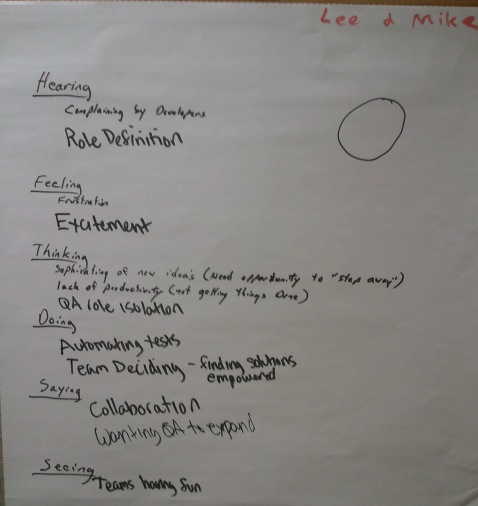 Lee & Mike
Hearing
Complaining by Developers
Role Definition
Feeling
Frustration
Excitement
Thinking
of new ideas (Need opportunity to "step away")
lack of productivity (not getting things done)
QA role isolation
Doing
Automating tests
Team Deciding - finding solutions
empowered
Saying
Collaboration
Wanting QA to expand
Seeing
Teams having fun